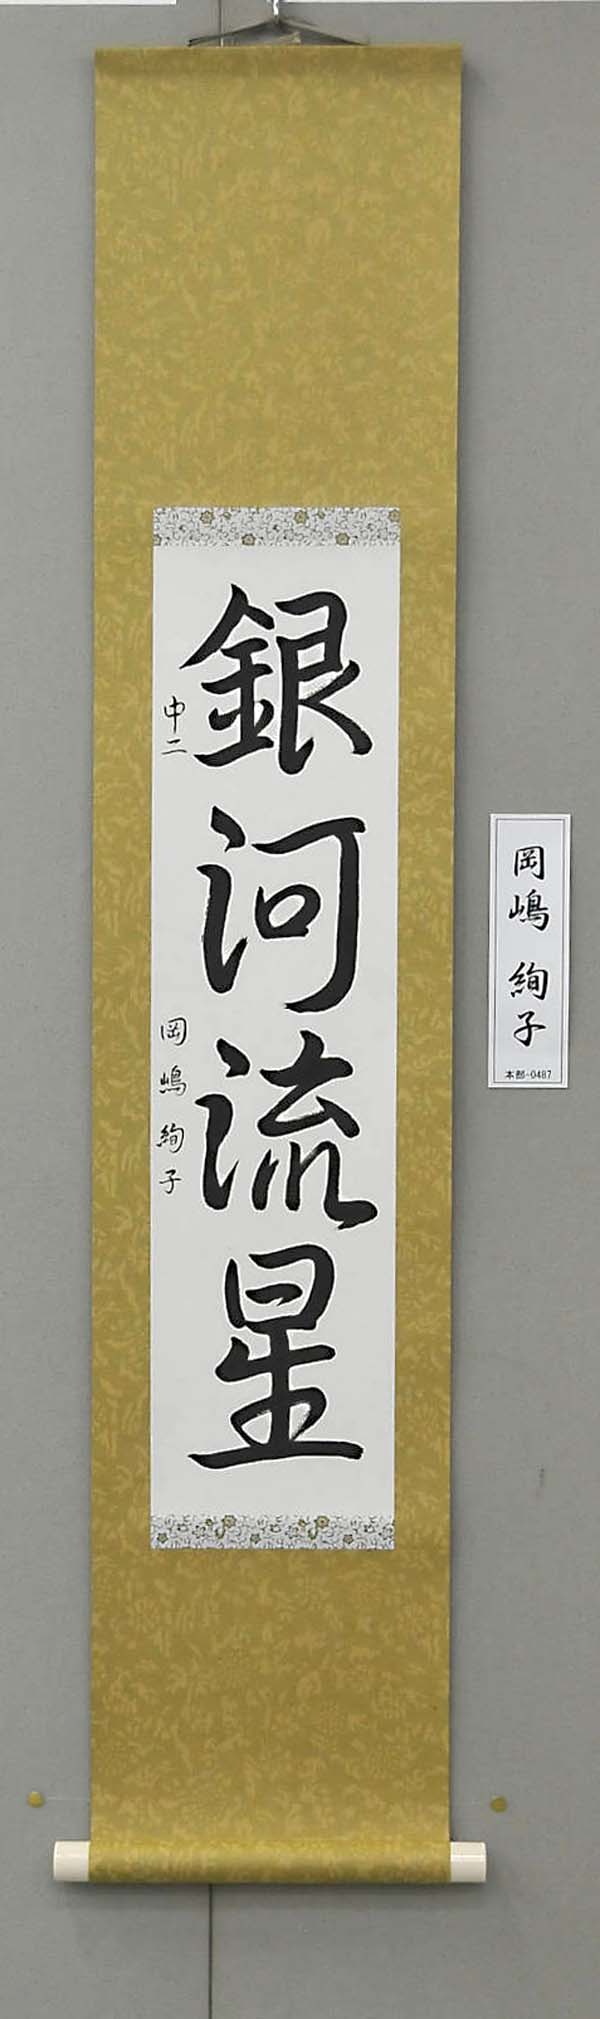 銀河流星
中二 岡嶋絢子
岡嶋 絢子
本部-0487